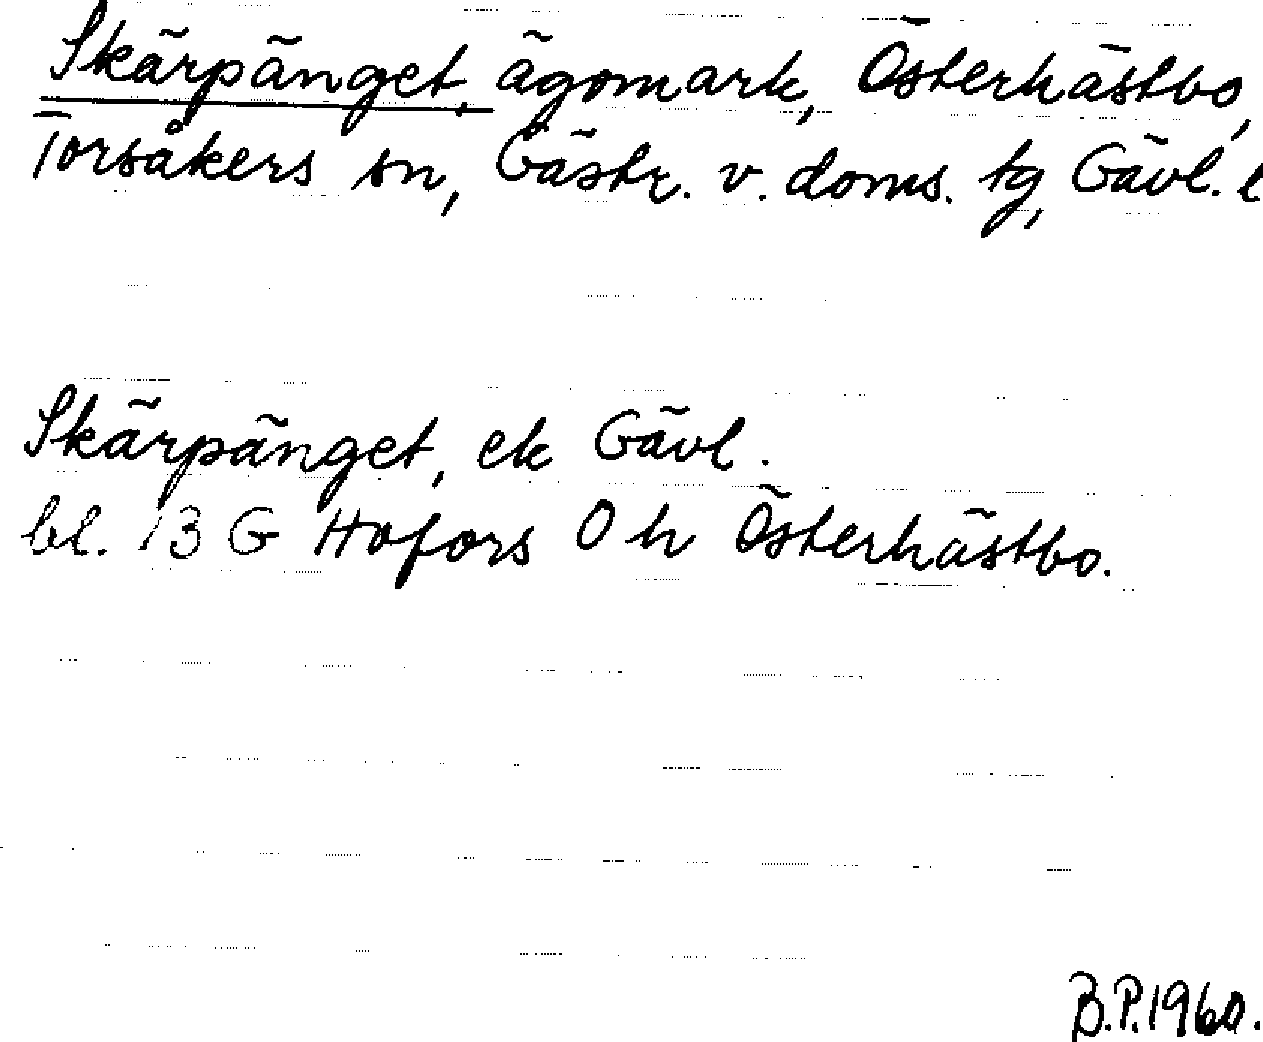 Skärpänget, ägomark, Österhästbo,
Torsåkers sn, Gästr. v. doms. tg, Gävl. l
Skärpänget, ek Gävl.
bl. 13 G Hofors 0 h Österhästbo.
B.P. 1960.